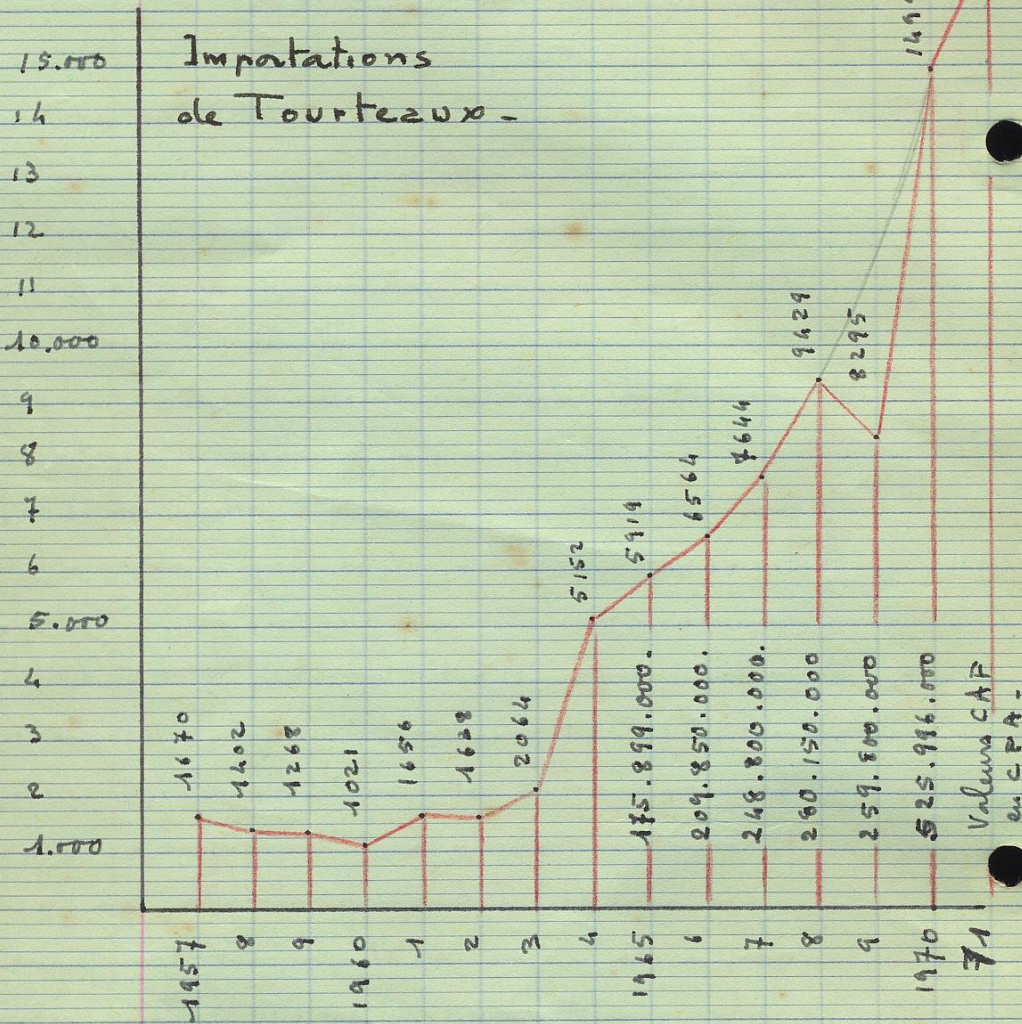 Importations
de Tourteaux -
15.000
14
13
12
11
10.000
9
8
7
6
5.000
4
3
2
1.000
1670
1402
1268
1021
1656
1628
2064
5152
5919
6564
7644
9429
8295
175.899.000.
209.850.000.
248.800.000.
280.150.000
259.800.000
525.996.000
Valeurs CAF
en CFA -
1957
8
9
1960
1
2
3
4
1965
6
7
8
9
1970
71